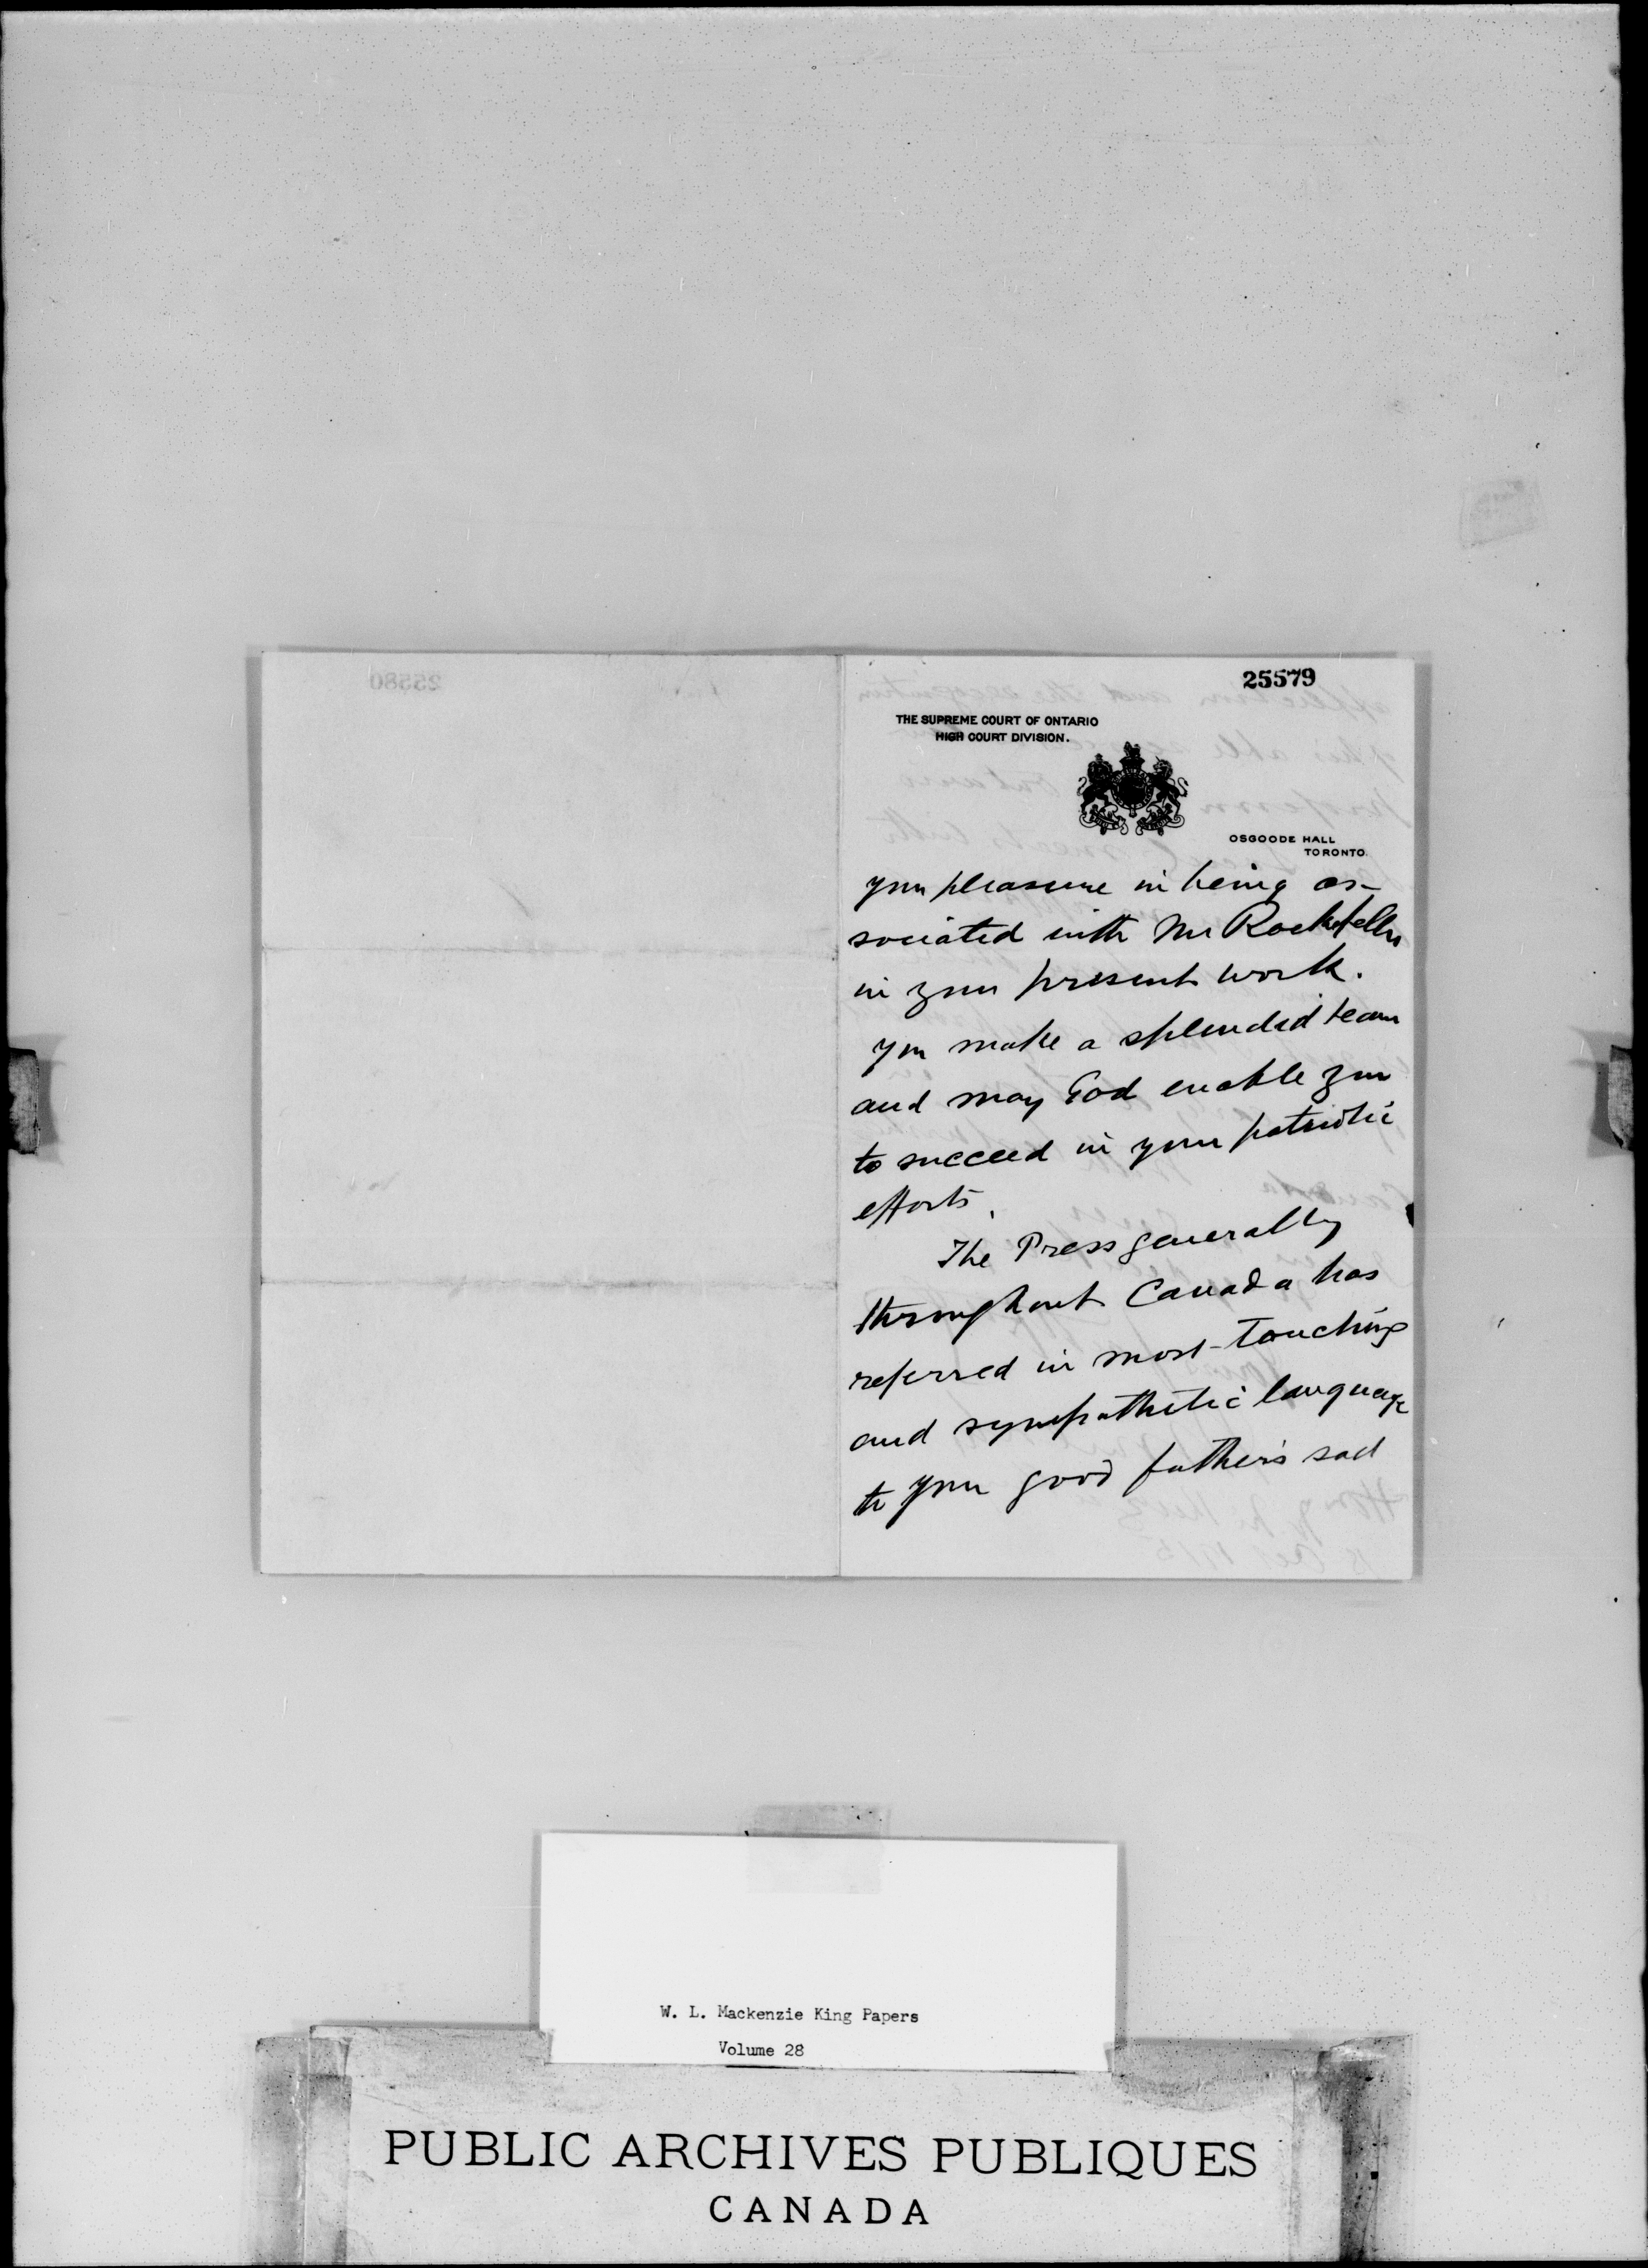 25579
THE SUPREME COURT OF ONTARIO
HIGH COURT DIVISION.
OSGOODE HALL
TORONTO.
your pleasure in being as-
sociated with Mr Rockefeller
in your present work.
You make a splendid team
and may God enable you
to succeed in your patriotic
efforts.
The Press generally
throughout Canada has
referred in most touching
and sympathetic language
to your good father's sad
W. L. Mackenzie King Papers
Volume 28
PUBLIC ARCHIVES PUBLIQUES
CANADA